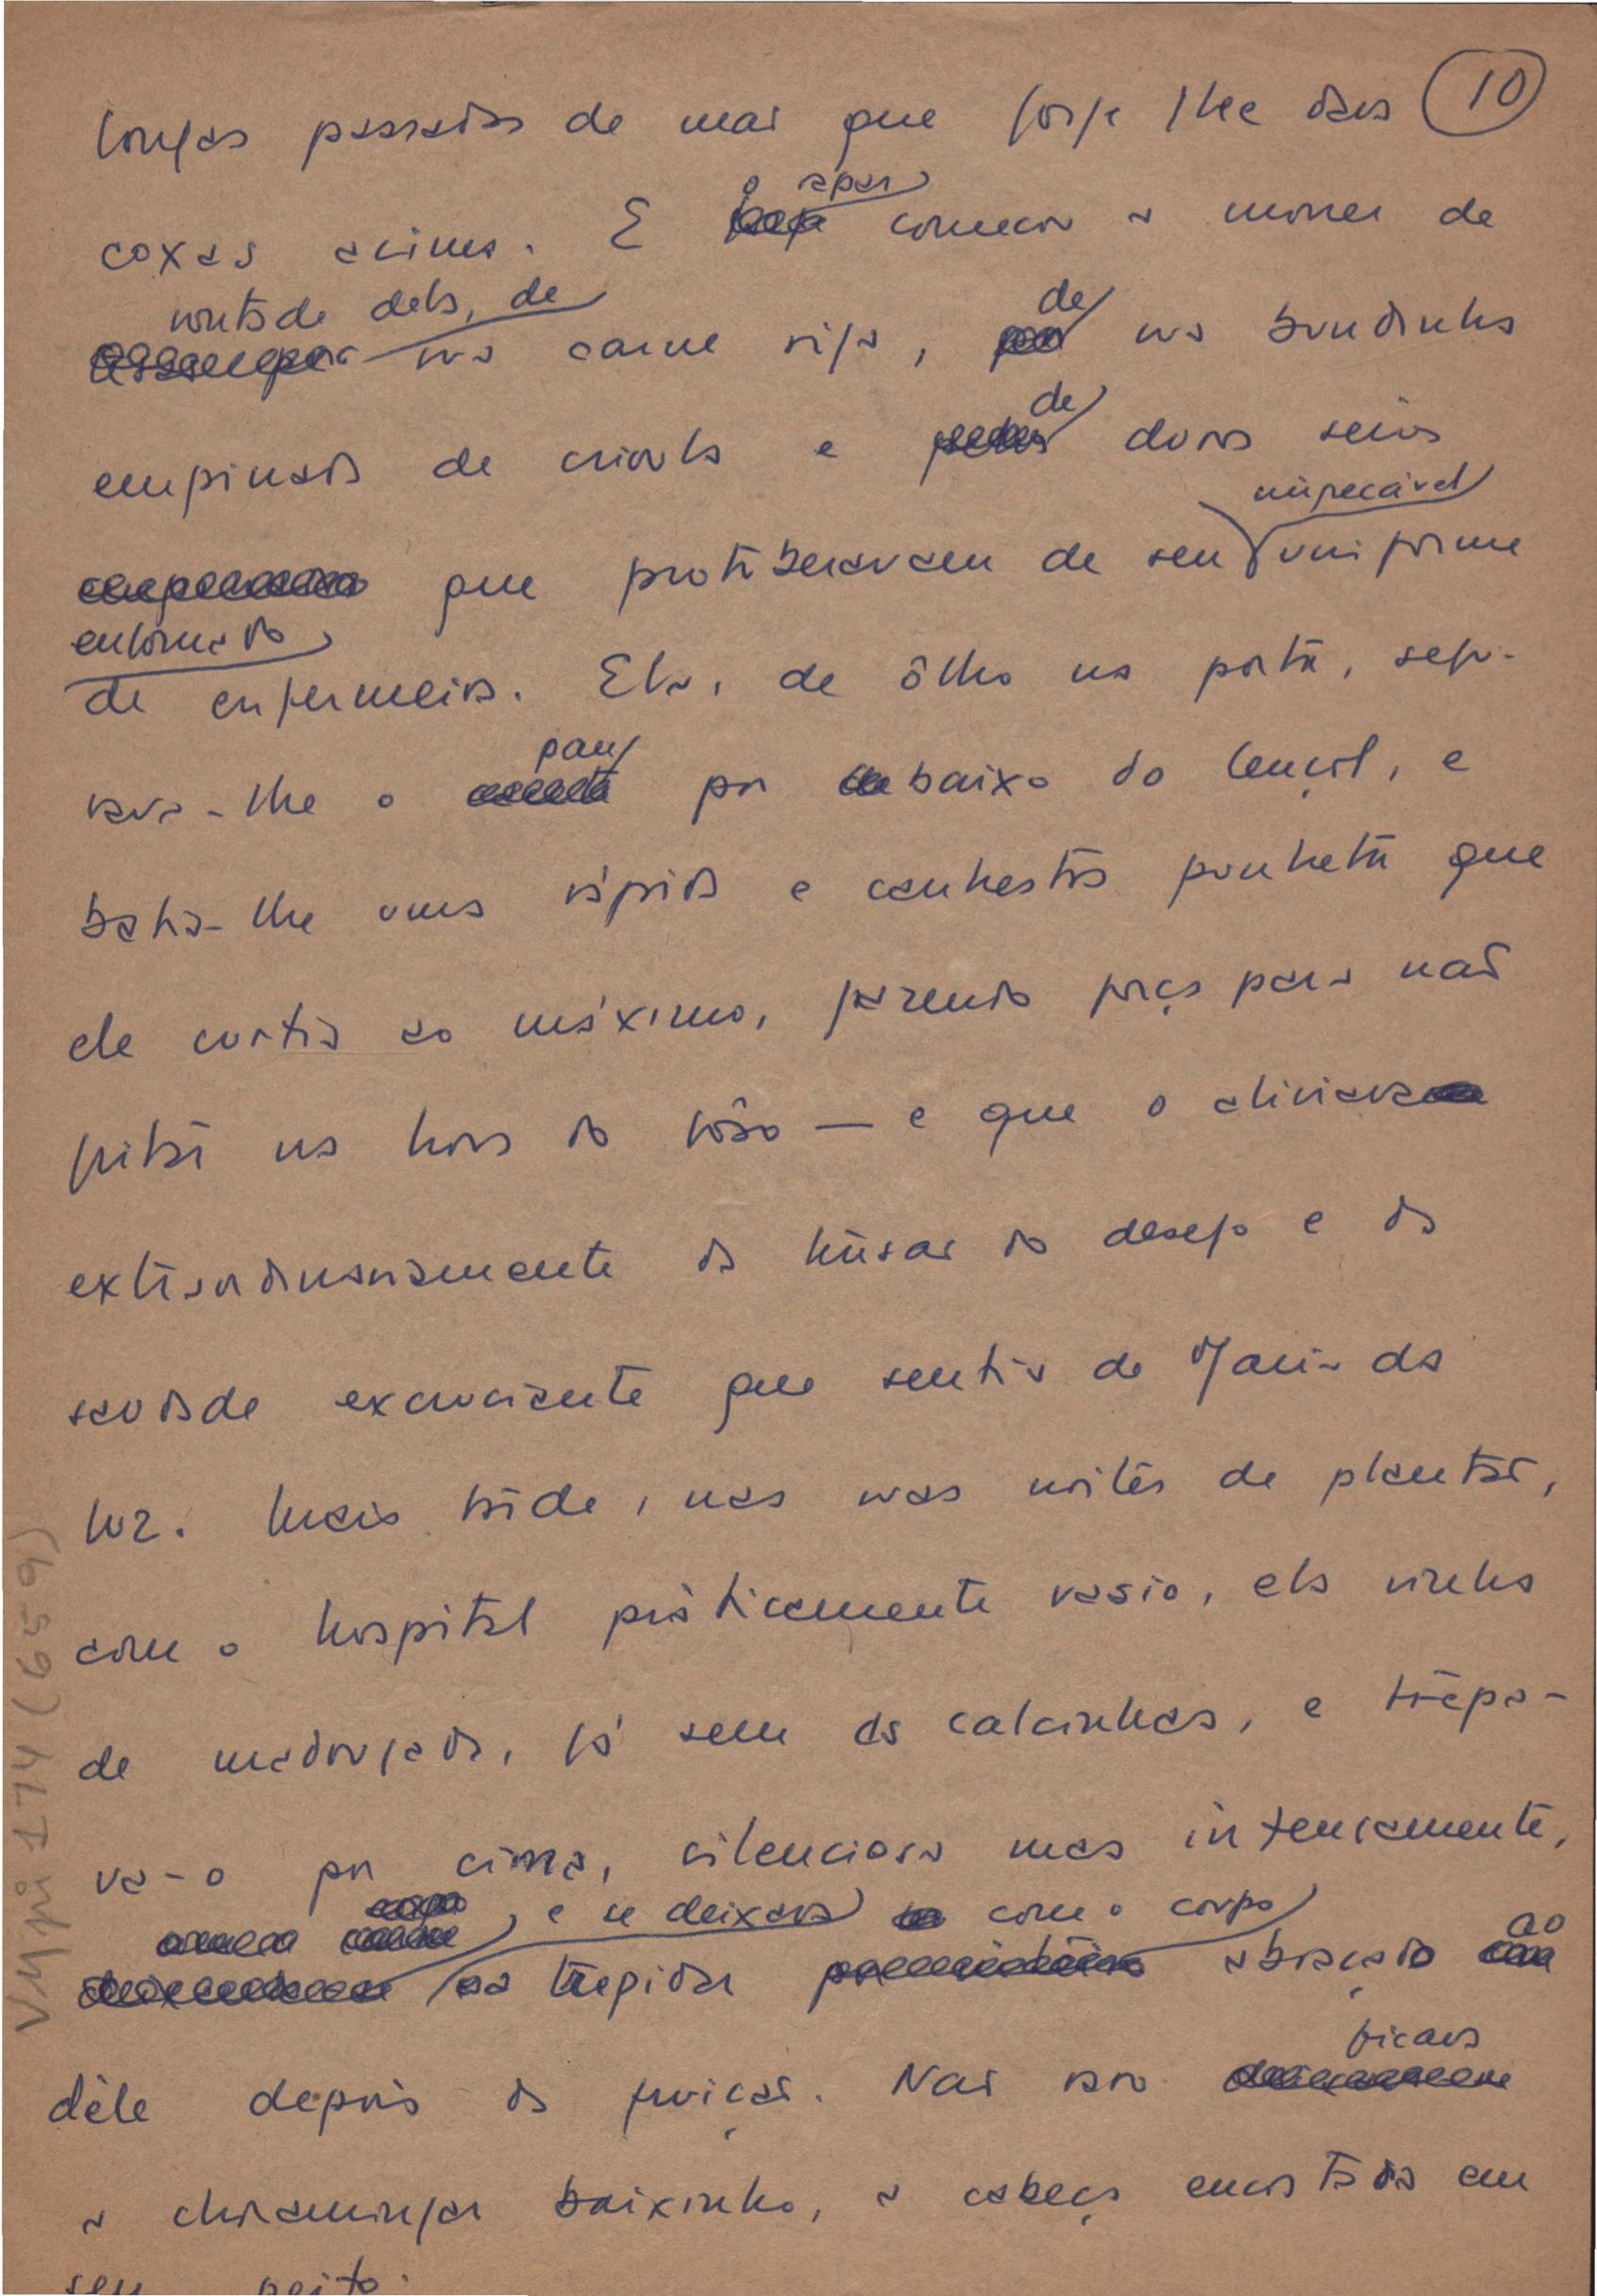 10
longas passadas de mão que Jorge lhe dava
coxas acima. E o rapaz começou a morrer de
vontade dela, de
sua carne rija, de sua bundinha
empinada de crioula e de duros seios
que protuberavam de seu impecável uniforme
engomado
de enfermeira. Ela, de ôlho na porta, segu-
rava-lhe o pau por baixo do lençol, e
batia-lhe uma rápida e canhestra punheta que
ele curtia ao máximo, fazendo força para não
gritar na hora do gôzo — e que o aliviava
extraordinàriamente da tensão do desejo e da
saudade excruciante que sentia de Maria da
Luz. Mais tarde, nas suas noites de plantão,
com o hospital pràticamente vasio, ela vinha
de madrugada, já sem as calcinhas, e trepa-
va-o por cima, silenciosa mas intensamente,
e se deixava com o corpo
a trepidar abraçado ao
dêle depois da função. Não raro ficava
a choramingar baixinho, a cabeça encostada em
seu peito.
VMpi 174 (659)